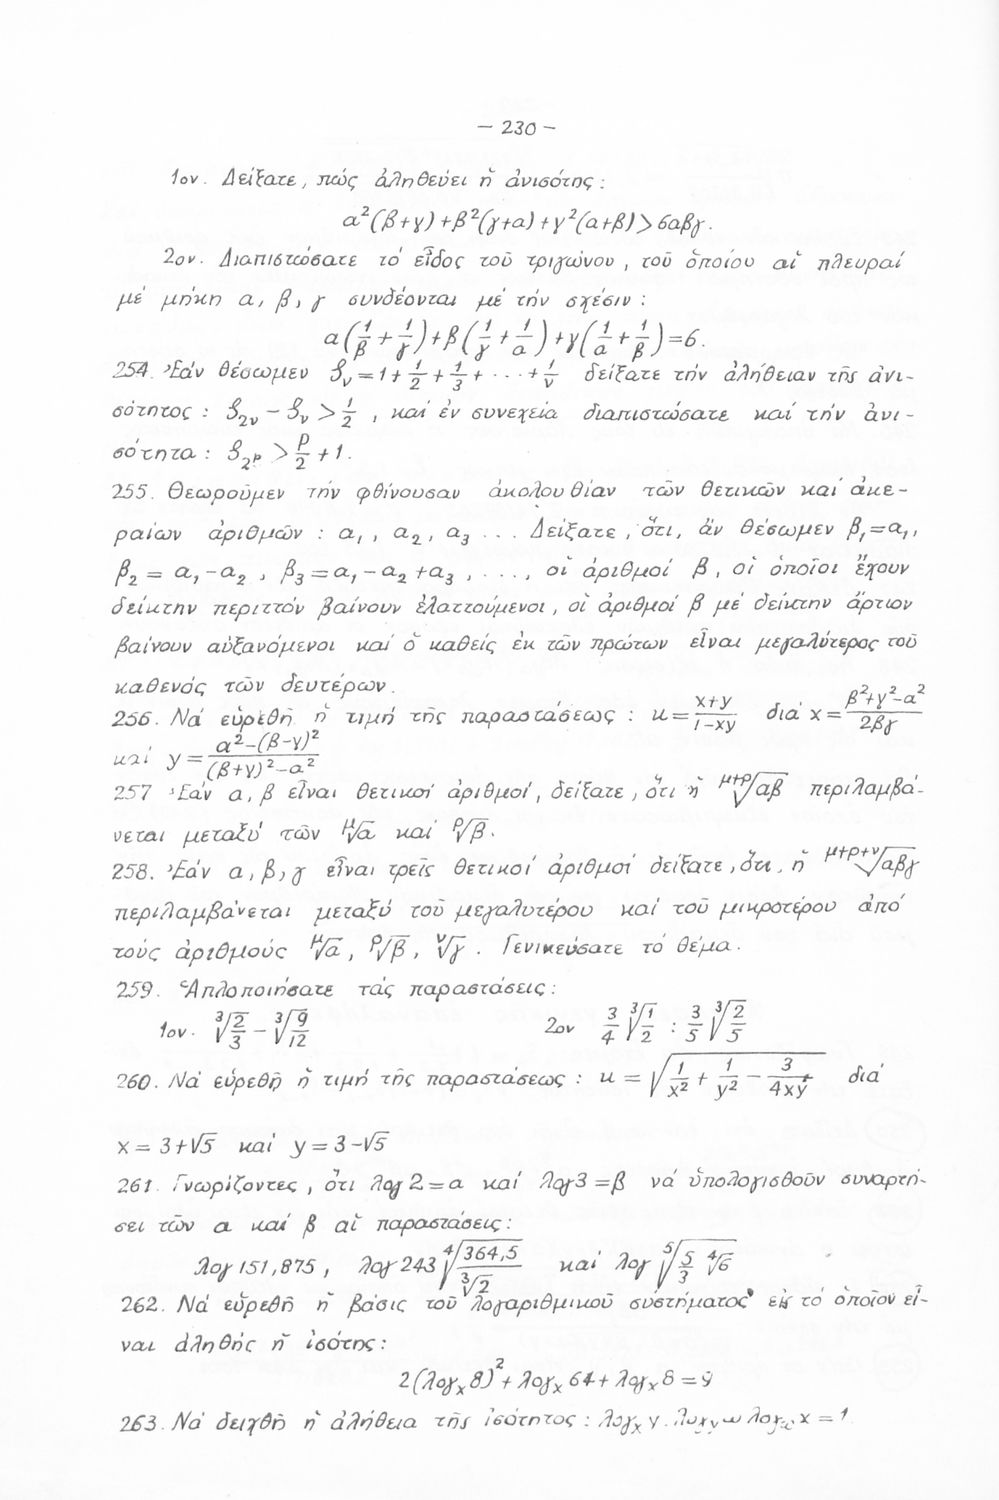 – 230 –
1ον. Δείξατε, πώς ἀληθεύει ἡ ἀνισότης:
α²(β+γ)+β²(γ+α)+γ²(α+β)>6αβγ.
2ον. Διαπιστώσατε τό εἶδος τοῦ τριγώνου, τοῦ ὁποίου αἱ πλευραί
μέ μήκη α, β, γ συνδέονται μέ τήν σχέσιν:
α(1/β + 1/γ)+β(1/γ + 1/α)+γ(1/α + 1/β)=6.
254. Ἐάν θέσωμεν S_ν = 1 + 1/2 + 1/3 + ··· + 1/ν δείξατε τήν ἀλήθειαν τῆς ἀνι-
σότητος: S_2ν – S_ν > 1/2, καί ἐν συνεχείᾳ διαπιστώσατε καί τήν ἀνι-
σότητα: S_2^ρ > ρ/2 + 1.
255. Θεωροῦμεν τήν φθίνουσαν ἀκολουθίαν τῶν θετικῶν καί ἀκε-
ραίων ἀριθμῶν: α₁, α₂, α₃ ... Δείξατε, ὅτι, ἄν θέσωμεν β₁=α₁,
β₂ = α₁-α₂, β₃ = α₁-α₂+α₃, ...., οἱ ἀριθμοί β, οἱ ὁποῖοι ἔχουν
δείκτην περιττόν βαίνουν ἐλαττούμενοι, οἱ ἀριθμοί β μέ δείκτην ἄρτιον
βαίνουν αὐξανόμενοι καί ὁ καθείς ἐκ τῶν πρώτων εἶναι μεγαλύτερος τοῦ
καθενός τῶν δευτέρων.
256. Νά εὑρεθῇ ἡ τιμή τῆς παραστάσεως: κ = (x+y)/(1-xy) διά x = (β²+γ²-α²)/(2βγ)
καί y = (α²-(β-γ)²)/((β+γ)²-α²)
257 Ἐάν α, β εἶναι θετικοί ἀριθμοί, δείξατε, ὅτι ἡ ^{μ+ρ}√αβ περιλαμβά-
νεται μεταξύ τῶν ^μ√α καί ^ρ√β.
258. Ἐάν α, β, γ εἶναι τρεῖς θετικοί ἀριθμοί δείξατε, ὅτι, ἡ ^{μ+ρ+ν}√αβγ
περιλαμβάνεται μεταξύ τοῦ μεγαλυτέρου καί τοῦ μικροτέρου ἀπό
τούς ἀριθμούς ^μ√α, ^ρ√β, ^ν√γ. Γενικεύσατε τό θέμα.
259. Ἁπλοποιήσατε τάς παραστάσεις:
1ον. ³√(2/3) – ³√(9/12) 2ον 3/4 ³√(1/2) : 3/5 ³√(2/5)
260. Νά εὑρεθῇ ἡ τιμή τῆς παραστάσεως: κ = √(1/x² + 1/y² – 3/4xy) διά
x = 3+√5 καί y = 3-√5
261. Γνωρίζοντες, ὅτι λογ2=α καί λογ3=β νά ὑπολογισθοῦν συναρτή-
σει τῶν α καί β αἱ παραστάσεις:
λογ 151,875, λογ 243 ⁴√(364,5/³√2) καί λογ ⁵√(5/3 ⁴√6)
262. Νά εὑρεθῇ ἡ βάσις τοῦ λογαριθμικοῦ συστήματος εἰς τό ὁποῖον εἶ-
ναι ἀληθής ἡ ἰσότης:
2(λογₓ8)² + λογₓ64 + λογₓ8 = 9
263. Νά δειχθῇ ἡ ἀλήθεια τῆς ἰσότητος: λογₓ y . λογ_y ω λογ_ω x = 1